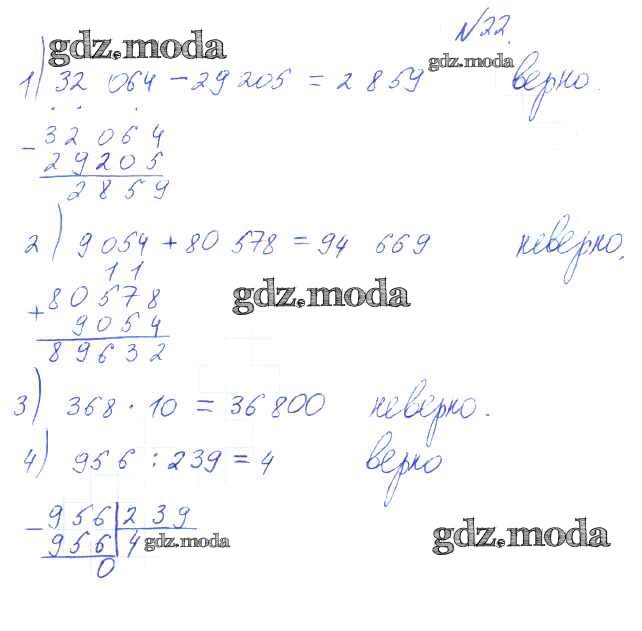 №22.
gdz.moda
gdz.moda
1) 32 064 − 29 205 = 2 859 верно.
− 32 064
29205
2859
2) 9 054 + 80 578 = 94 669 неверно,
1 1
gdz.moda
+ 80578
9054
89632
3) 368 · 10 = 36 800 неверно.
4) 956 : 239 = 4 верно
− 956 | 239
956 | 4 gdz.moda
0
gdz.moda